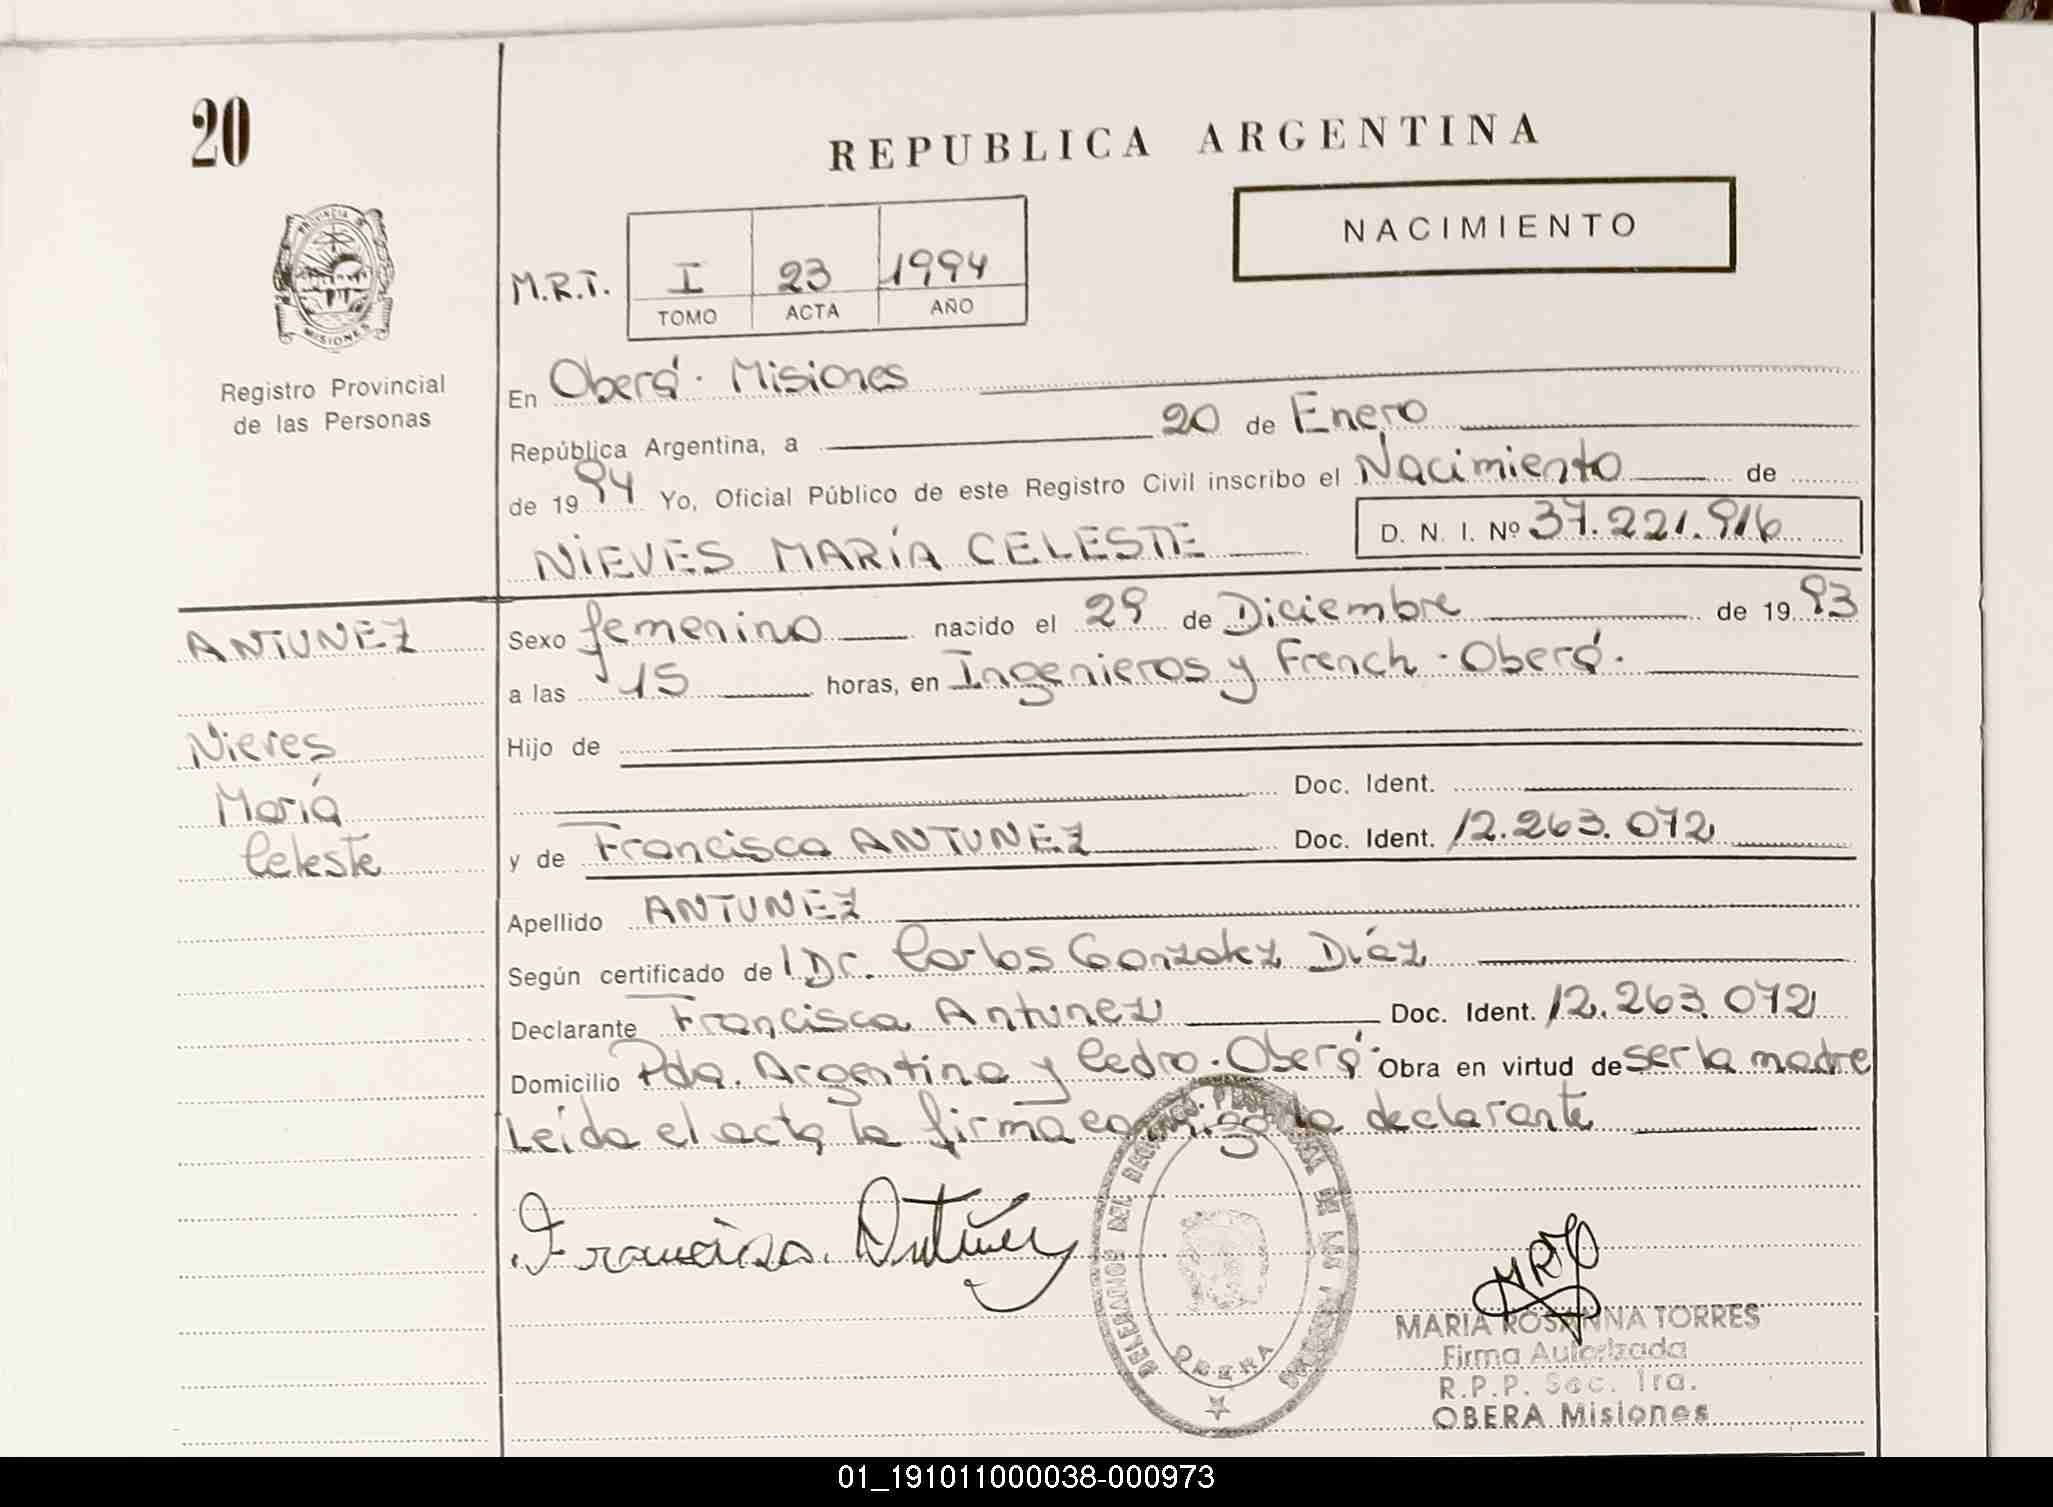 20
REPUBLICA ARGENTINA
NACIMIENTO
PROVINCIA DE
MISIONES
Registro Provincial
de las Personas
M.R.T. I 23 1994
TOMO ACTA AÑO
En Oberá. Misiones
República Argentina, a 20 de Enero
de 1994 Yo, Oficial Público de este Registro Civil inscribo el Nacimiento de
NIEVES MARÍA CELESTE D. N. I. Nº 37.221.916
ANTUNEZ
Nieves
María
Celeste
Sexo femenino nacido el 29 de Diciembre de 1993
a las 15 horas, en Ingenieros y French - Oberá.
Hijo de
Doc. Ident.
y de Francisca ANTUNEZ Doc. Ident. 12.263.072
Apellido ANTUNEZ
Según certificado de Dr. Carlos Gonzalez Díaz
Declarante Francisca Antunez Doc. Ident. 12.263.072
Domicilio Pda. Argentina y Cedro - Oberá - Obra en virtud de ser la madre
Leída el acta, la firma conmigo la declarante
Francisca Antúnez
MRT
MARIA ROSANNA TORRES
Firma Autorizada
R.P.P. Sec. 1ra.
OBERA Misiones
OBERA
01_191011000038-000973